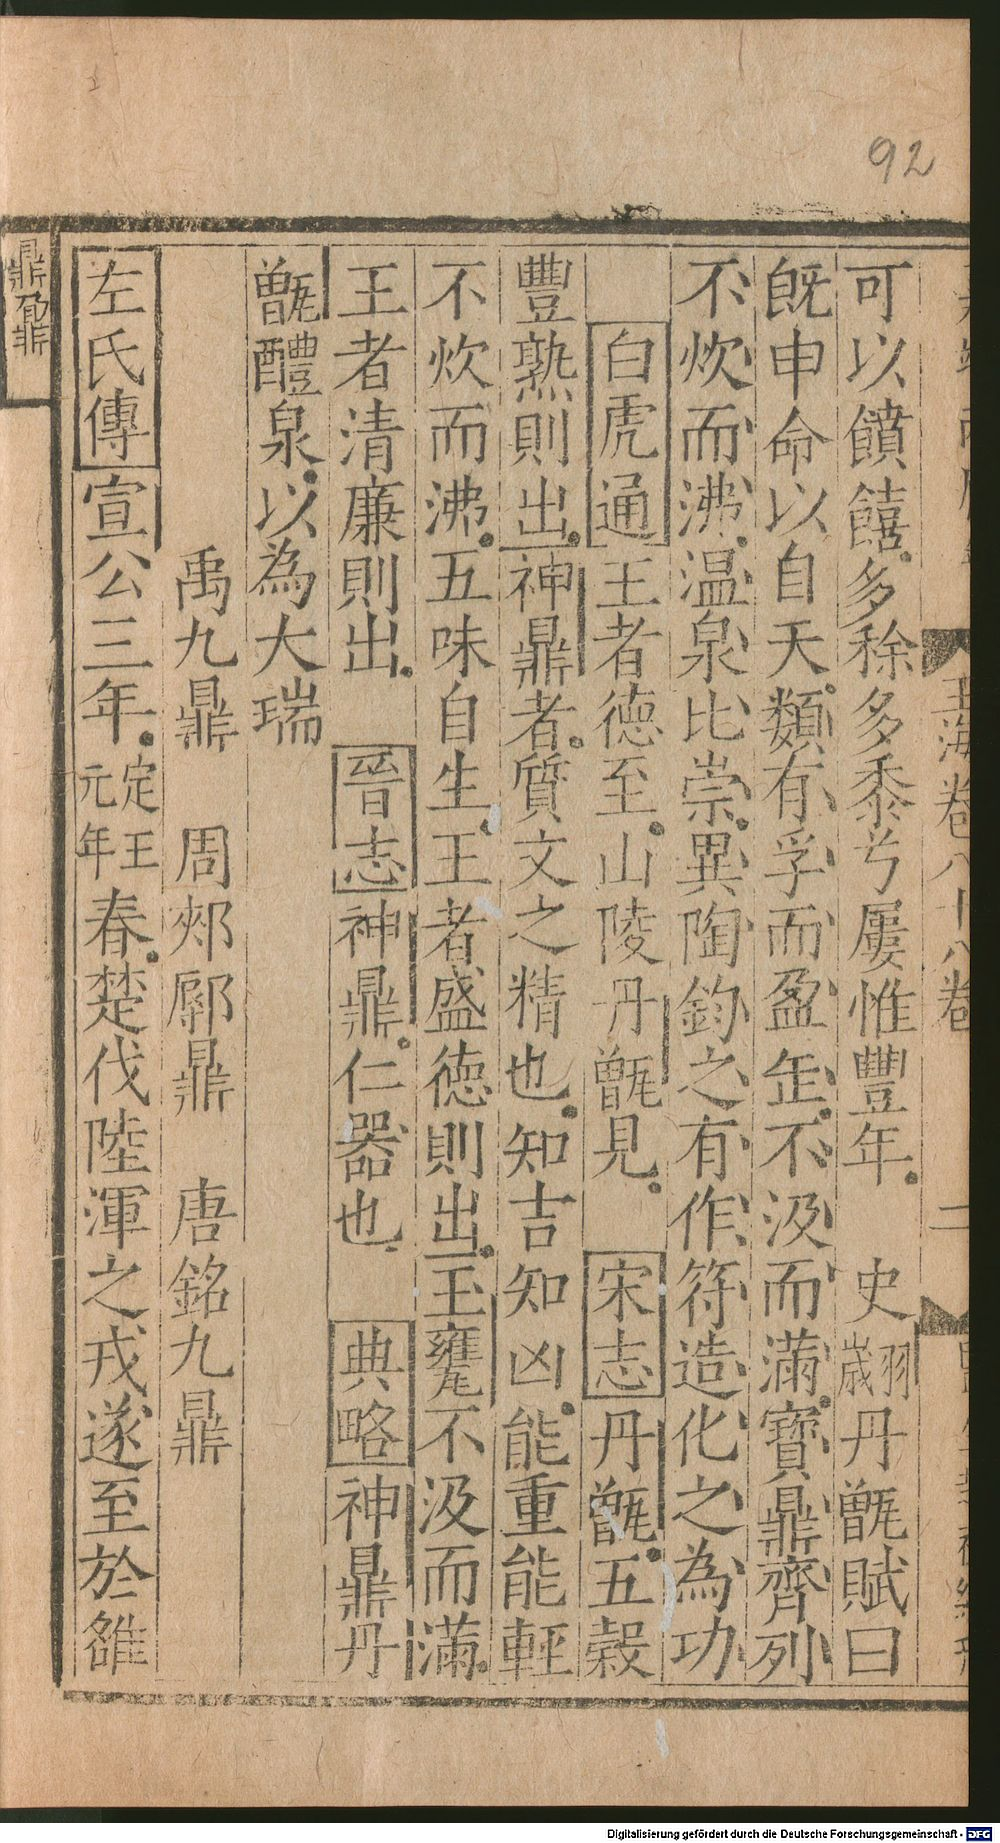 92
玉海卷八十八卷 二
可以饙饎多稌多黍兮屢惟豐年 史翙歲丹甑賦曰
旣申命以自天類有孚而盈缶不汲而滿寶鼎齊列
不炊而沸温泉比崇異陶鈞之有作符造化之為功
白虎通王者德至山陵丹甑見 宋志丹甑五穀
豐熟則出神鼎者質文之精也知吉知凶能重能輕
不炊而沸五味自生王者盛德則出玉甕不汲而滿
王者清廉則出 晉志神鼎仁器也 典略神鼎丹
甑醴泉以為大瑞
禹九鼎 周郟鄏鼎 唐銘九鼎
左氏傳宣公三年定王元年春楚伐陸渾之戎遂至於雒
鼎鼐
Digitalisierung gefördert durch die Deutsche Forschungsgemeinschaft - DFG